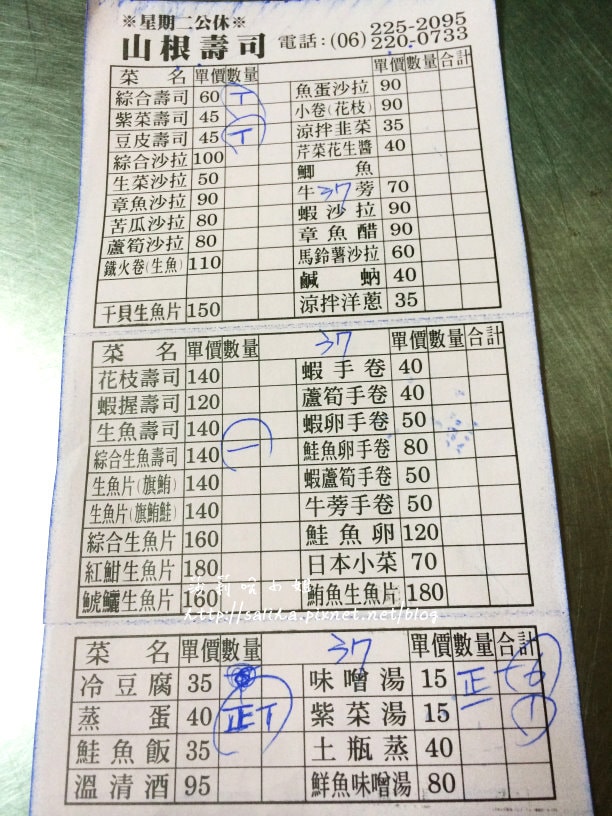 ※星期二公休※
山根壽司 電話:(06) 225-2095
220-0733
菜名 單價 數量 單價 數量 合計
綜合壽司 60 丅 魚蛋沙拉 90
紫菜壽司 45 小卷(花枝) 90
豆皮壽司 45 丅 涼拌韭菜 35
綜合沙拉 100 芹菜花生醬 40
生菜沙拉 50 鯽魚
章魚沙拉 90 牛蒡 70 37
苦瓜沙拉 80 蝦沙拉 90
蘆筍沙拉 80 章魚醋 90
鐵火卷(生魚) 110 馬鈴薯沙拉 60
鹹蚋 40
干貝生魚片 150 涼拌洋蔥 35
菜名 單價 數量 37 單價 數量 合計
花枝壽司 140 蝦手卷 40
蝦握壽司 120 蘆筍手卷 40
生魚壽司 140 蝦卵手卷 50
綜合生魚壽司 140 一 鮭魚卵手卷 80
生魚片(旗鮪) 140 蝦蘆筍手卷 50
生魚片(旗鮪鮭) 140 牛蒡手卷 50
綜合生魚片 160 鮭魚卵 120
紅魽生魚片 180 日本小菜 70
鯱鱺生魚片 160 鮪魚生魚片 180
http://salika.pixnet.net/blog
菜名 單價 數量 37 單價 數量 合計
冷豆腐 35 味噌湯 15 正一
蒸蛋 40 正丅 紫菜湯 15
鮭魚飯 35 土瓶蒸 40
溫清酒 95 鮮魚味噌湯 80